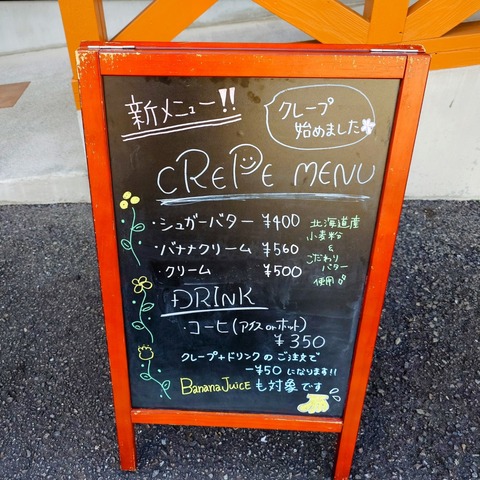 新メニュー!!
クレープ
始めました
CREPE MENU
・シュガーバター ¥400
・バナナクリーム ¥560
・クリーム ¥500
北海道産
小麦粉
&
こだわり
バター
使用
DRINK
・コーヒ(アイス or ホット)
¥350
クレープ+ドリンクのご注文で
−¥50 になります!!
Banana Juice も対象です